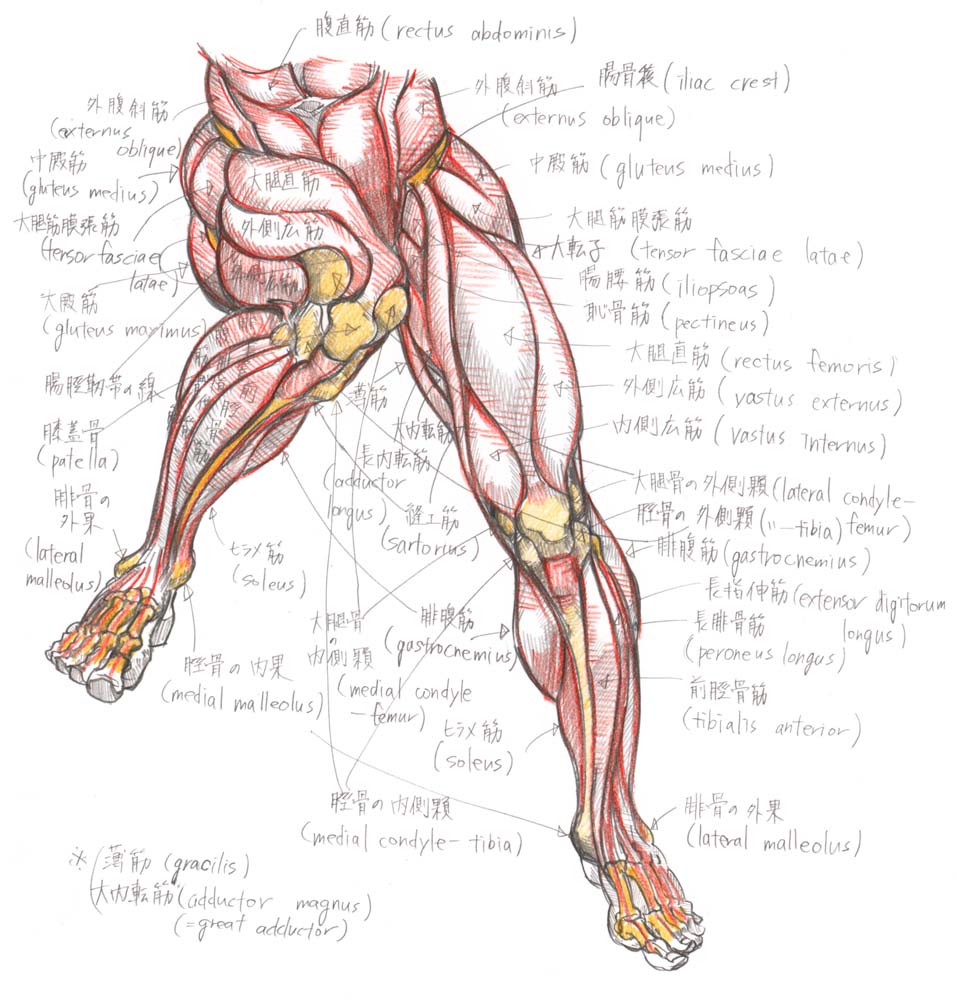 腹直筋(rectus abdominis)
外腹斜筋
(externus
oblique)
中殿筋
(gluteus medius)
大腿筋膜張筋
(tensor fasciae
latae)
大殿筋
(gluteus maximus)
腸脛靭帯の線
膝蓋骨
(patella)
腓骨の
外果
(lateral
malleolus)
大腿直筋
外側広筋
外側広筋
ヒラメ筋
(soleus)
脛骨の内果
(medial malleolus)
外腹斜筋
(externus oblique)
腸骨稜(iliac crest)
中殿筋(gluteus medius)
大腿筋膜張筋
大転子 (tensor fasciae latae)
腸腰筋(iliopsoas)
恥骨筋(pectineus)
大腿直筋(rectus femoris)
外側広筋(vastus externus)
内側広筋(vastus internus)
薄筋
大内転筋
長内転筋
(adductor
longus)
縫工筋
(sartorius)
大腿骨の外側顆(lateral condyle-
femur)
脛骨の外側顆(〃-tibia)
腓腹筋(gastrocnemius)
長指伸筋(extensor digitorum
longus)
長腓骨筋
(peroneus longus)
前脛骨筋
(tibialis anterior)
大腿骨
の
内側顆
(medial condyle
-femur)
腓腹筋
(gastrocnemius)
ヒラメ筋
(soleus)
脛骨の内側顆
(medial condyle-tibia)
腓骨の外果
(lateral malleolus)
※(薄筋(gracilis)
大内転筋(adductor magnus)
(=great adductor)